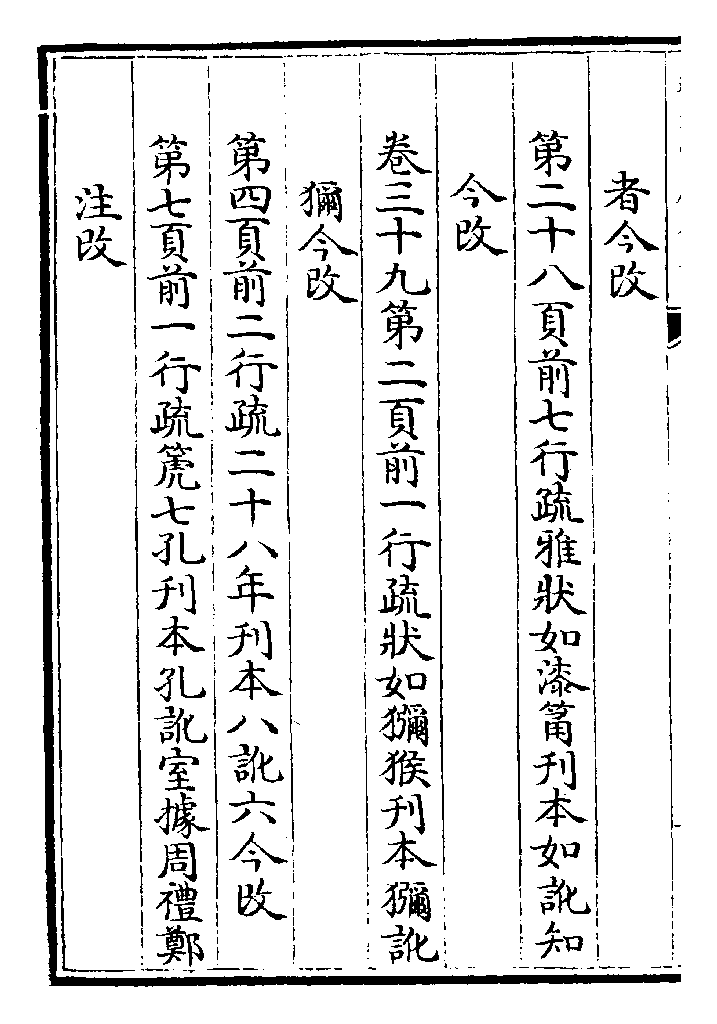 者今改
第二十八頁前七行疏雅狀如漆筩刊本如訛知
今改
卷三十九第二頁前一行疏狀如獼猴刊本獼訛
獮今改
第四頁前二行疏二十八年刊本八訛六今改
第七頁前一行疏箎七孔刊本孔訛室據周禮鄭
注改